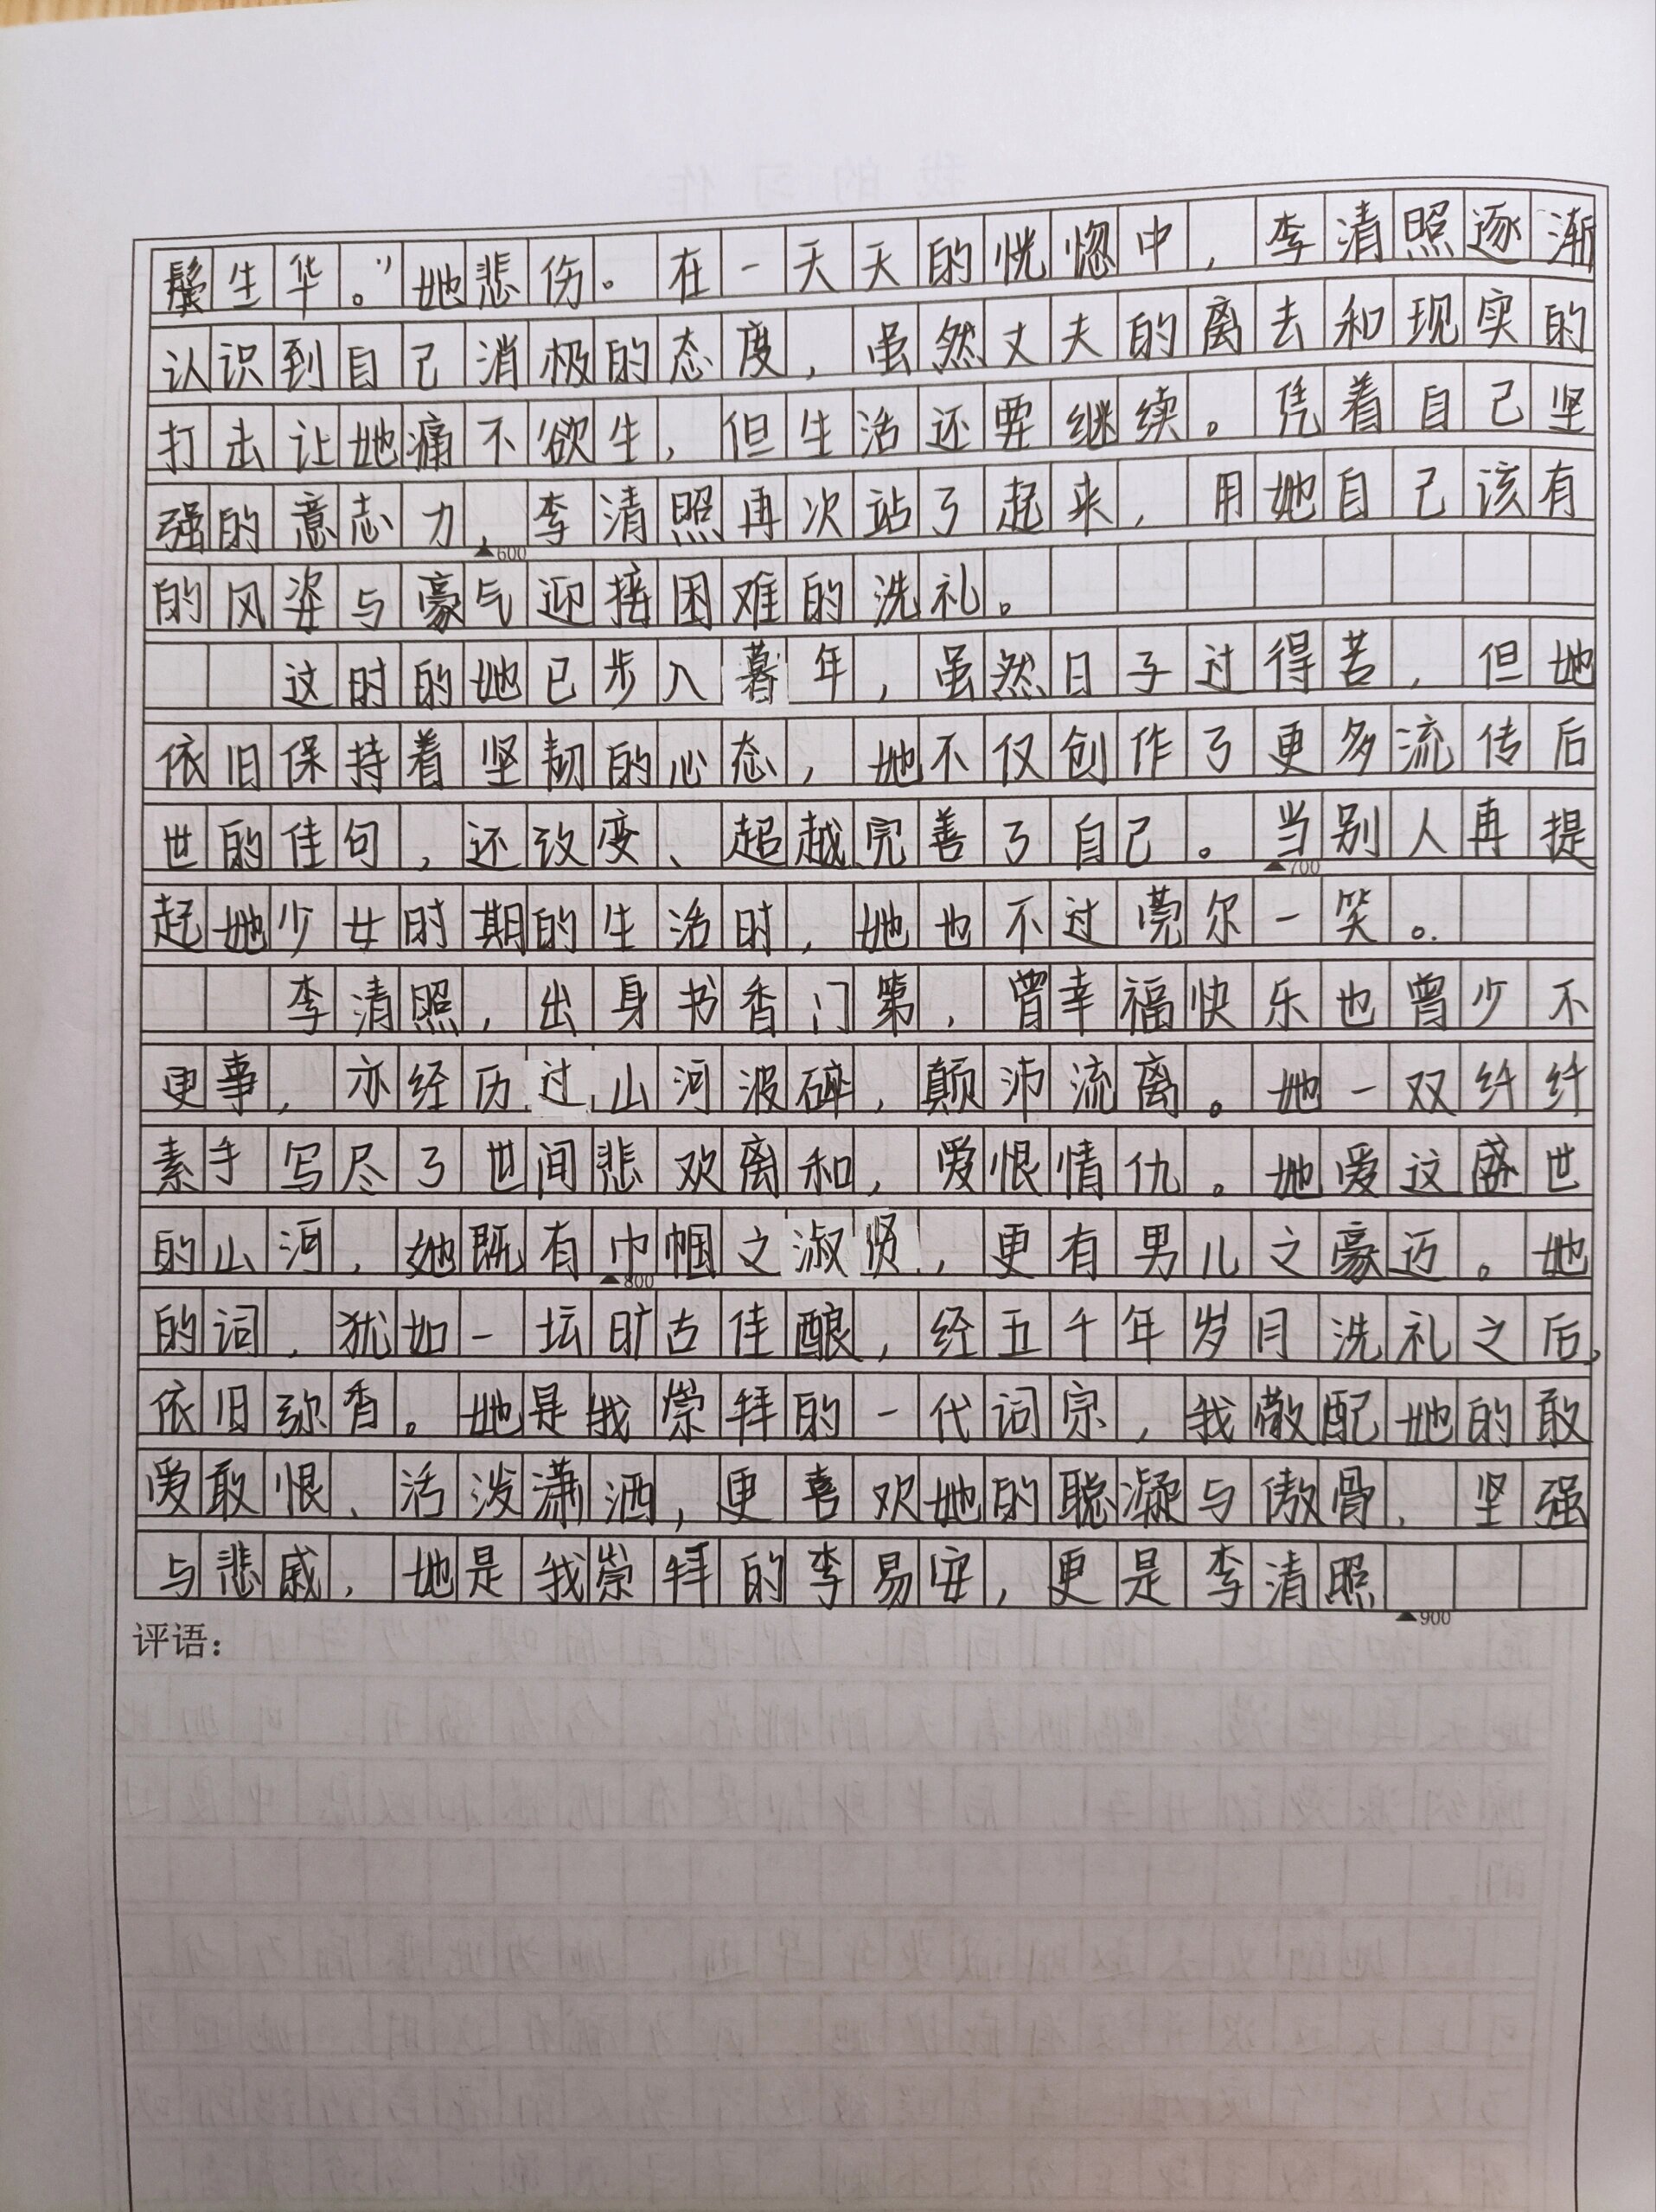 鬓生华。”她悲伤。在一天天的恍惚中，李清照逐渐
认识到自己消极的态度，虽然丈夫的离去和现实的
打击让她痛不欲生，但生活还要继续。凭着自己坚
强的意志力，李清照再次站了起来，用她自己该有
▲600
的风姿与豪气迎接困难的洗礼。
这时的她已步入暮年，虽然日子过得苦，但她
依旧保持着坚韧的心态，她不仅创作了更多流传后
世的佳句，还改变、超越完善了自己。当别人再提
▲700
起她少女时期的生活时，她也不过莞尔一笑。
李清照，出身书香门第，曾幸福快乐也曾少不
更事，亦经历过山河波碎，颠沛流离。她一双纤纤
素手写尽了世间悲欢离和，爱恨情仇。她爱这盛世
的山河，她既有巾帼之淑贤，更有男儿之豪迈。她
▲800
的词，犹如一坛旷古佳酿，经五千年岁月洗礼之后，
依旧弥香。她是我崇拜的一代词宗，我儆配她的敢
爱敢恨、活泼潇洒，更喜欢她的聪凝与傲骨，坚强
与悲戚，她是我崇拜的李易安，更是李清照
▲900
评语：